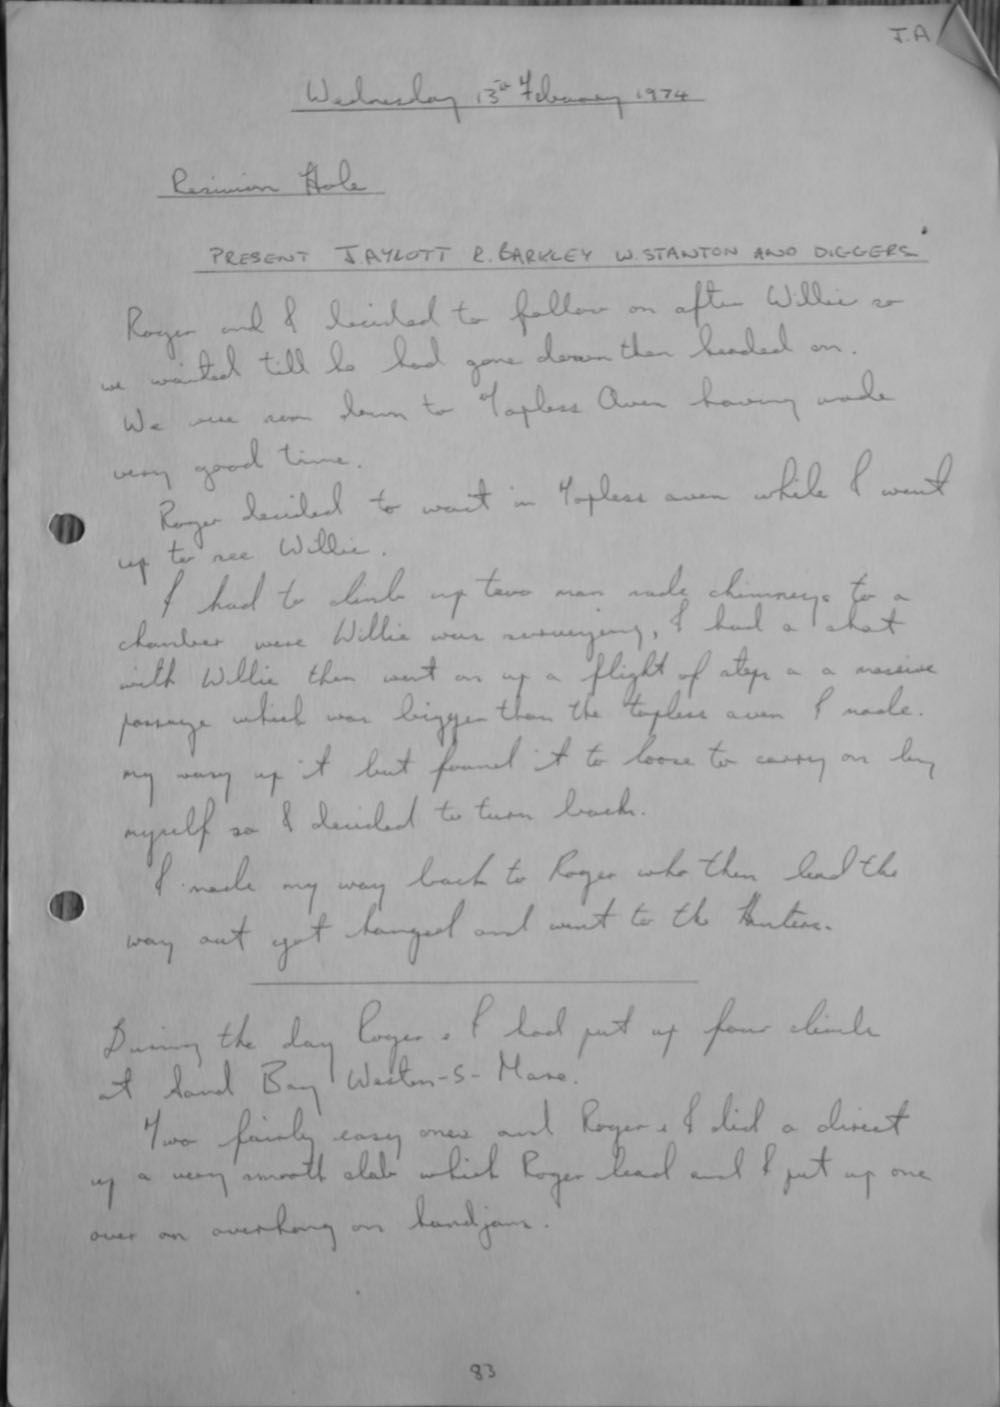 J.A
Wednesday 13th February 1974
Reservoir Hole
PRESENT J.AYLOTT R.BARKLEY W.STANTON AND DIGGERS
Roger and I decided to follow on after Willie so
we waited till he had gone down then headed on.
We were soon down to Topless Aven having made
very good time.
Roger decided to wait in Topless aven while I went
up to see Willie.
I had to climb up two man made chimneys to a
chamber were Willie was surveying, I had a chat
with Willie then went on up a flight of steps a a massive
passage which was bigger than the topless aven I made.
my way up it but found it to loose to carry on by
myself so I decided to turn back.
I made my way back to Roger who then lead the
way out got changed and went to the Hunters.
During the day Roger & I had put up four climbs
at Sand Bay Weston-S-Mare.
Two fairly easy ones and Roger & I did a direct
up a very smooth slab which Roger lead and I put up one
over an overhang on handjams.
83